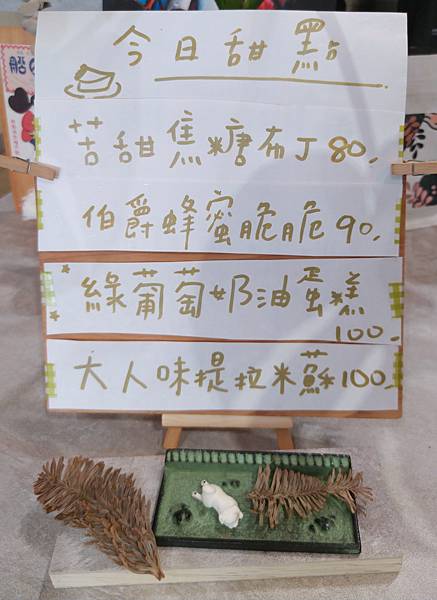 今日甜點
苦甜焦糖布丁80.
伯爵蜂蜜脆脆90.
綠葡萄奶油蛋糕
100.
大人味提拉米蘇100.